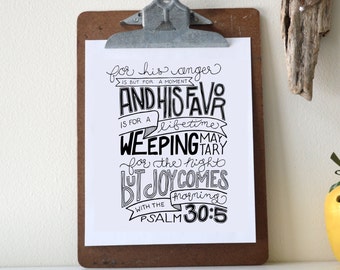 for his anger
IS BUT FOR A MOMENT
AND HIS FAVOR
IS FOR A lifetime
WEEPING MAY TARY
for the night
BUT JOY COMES
WITH THE morning
PSALM 30:5